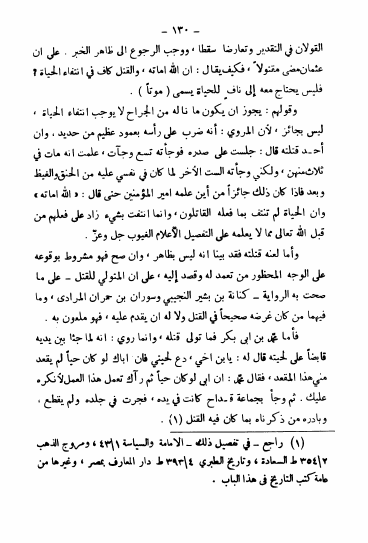 - ١٣٠ -
القولان في التقدير وتعارضا سقطا ، ووجب الرجوع الى ظاهر الخبر . على ان
عثمان مضى مقتولاً ، فكيف يقال : ان الله اماته ، والقتل كاف في انتفاء الحياة ؟
فليس يحتاج معه إلى ناف للحياة يسمى ( موتاً ) .
وقولهم : يجوز ان يكون ما ناله من الجراح لا يوجب انتفاء الحياة ،
ليس بجائز ، لأن المروي : انه ضرب على رأسه بعمود عظيم من حديد ، وان
أحد قتلته قال : جلست على صدره فوجأته تسع وجآت ، علمت انه مات في
ثلاث منهن ، ولكني وجأته الست الأخر لما كان في نفسي عليه من الحنق والغيظ
وبعد فاذا كان ذلك جائزاً من أين علمه امير المؤمنين حتى قال : « الله اماته »
وان الحياة لم تنتف بما فعله القاتلون ، وانما انتفت بشيء زاد على فعلهم من
قبل الله تعالى مما لا يعلمه على التفصيل إلا علام الغيوب جل وعزّ .
وأما لعنه قتلته فقد بينا انه ليس بظاهر ، وان صح فهو مشروط بوقوعه
على الوجه المحظور من تعمد له وقصد إليه ، على ان المتولي للقتل - على ما
صحت به الرواية - كنانة بن بشير التجيبي وسوران بن حمران المرادي ، وما
فيهما من كان غرضه صحيحاً في القتل ولا له ان يقدم عليه ، فهو ملعون به .
فأما محمد بن ابى بكر فما تولى قتله ، وانما روي : انه لما جثا بين يديه
قابضاً على لحيته قال له : يابن اخي ، دع لحيتي فان اباك لو كان حياً لم يقعد
مني هذا المقعد ، فقال محمد : ان ابى لو كان حياً ثم رآك تعمل هذا العمل لأنكره
عليك . ثم وجأ بجماعة قداح كانت في يده ، فجرت في جلده ولم يقطع ،
وبادره من ذكرناه بما كان فيه القتل (١) .
(١) راجع - في تفصيل ذلك - الامامة والسياسة ٤٣/١ ، ومروج الذهب
٣٥٤/٢ ط السعادة ، وتاريخ الطبري ٣٩٣/٤ ط دار المعارف بمصر ، وغيرها من
عامة كتب التاريخ في هذا الباب .